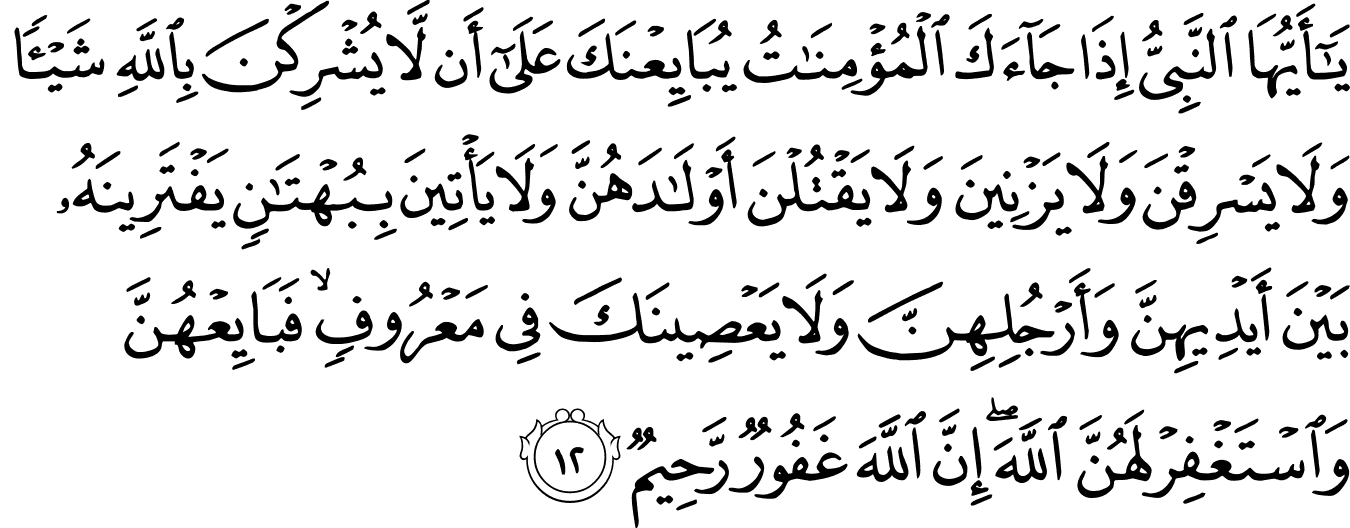 يَٰٓأَيُّهَا ٱلنَّبِىُّ إِذَا جَآءَكَ ٱلْمُؤْمِنَٰتُ يُبَايِعْنَكَ عَلَىٰٓ أَن لَّا يُشْرِكْنَ بِٱللَّهِ شَيْـًٔا
وَلَا يَسْرِقْنَ وَلَا يَزْنِينَ وَلَا يَقْتُلْنَ أَوْلَٰدَهُنَّ وَلَا يَأْتِينَ بِبُهْتَٰنٍ يَفْتَرِينَهُۥ
بَيْنَ أَيْدِيهِنَّ وَأَرْجُلِهِنَّ وَلَا يَعْصِينَكَ فِى مَعْرُوفٍ ۙ فَبَايِعْهُنَّ
وَٱسْتَغْفِرْ لَهُنَّ ٱللَّهَ ۖ إِنَّ ٱللَّهَ غَفُورٌ رَّحِيمٌ ١٢